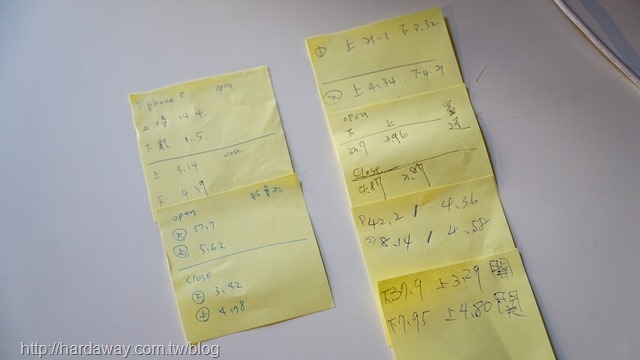 iphone open
上傳 14.4
下載 1.5
close
上 3.14
下 4.39
open
下 37.7
上 5.62
close
下 3.42
上 4.78
① 下 3.32
② 上 4.34 下 4.21
open
下 上
3.96
close
4.87 3.87
42.2 / 4.36
② 8.14 / 4.58
下37.9 上3.29 開
下7.95 上4.80 關
http://hardaway.com.tw/blog